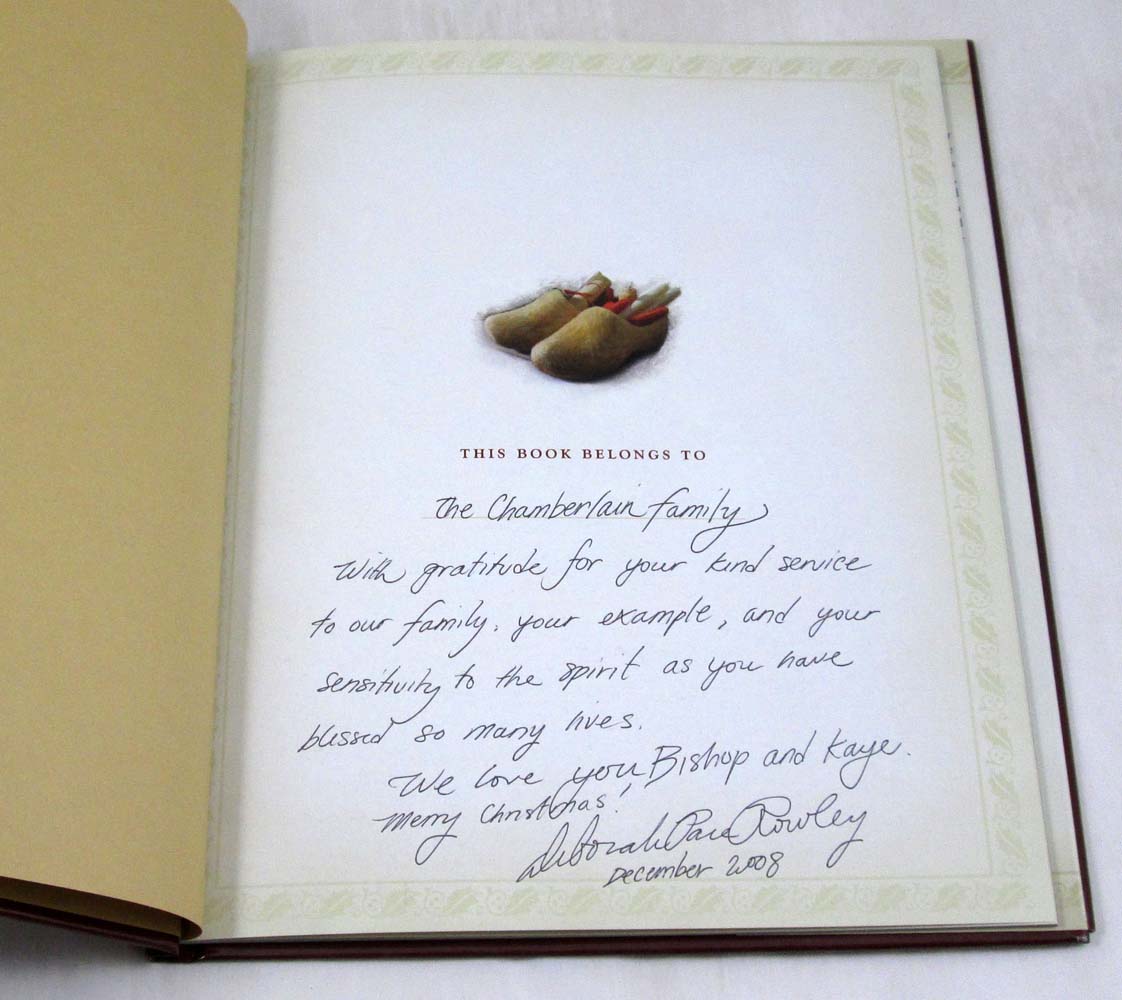 THIS BOOK BELONGS TO
The Chamberlain family
With gratitude for your kind service
to our family, your example, and your
sensitivity to the spirit as you have
blessed so many lives.
We love you Bishop and Kaye.
Merry Christmas!
Deborah Pace Rowley
December 2008